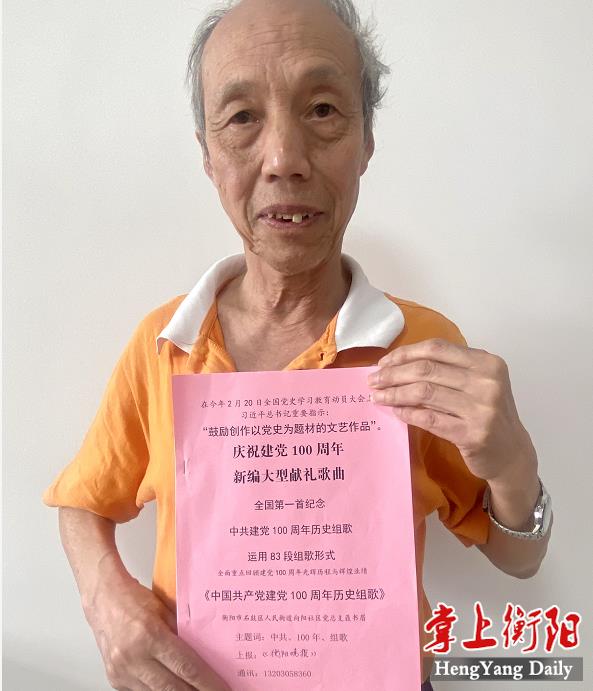 在今年2月20日全国党史学习教育动员大会上
习近平总书记重要指示：
“鼓励创作以党史为题材的文艺作品”。
庆祝建党100周年
新编大型献礼歌曲
全国第一首纪念
中共建党100周年历史组歌
运用83段组歌形式
全面重点回顾建党100周年光辉历程与辉煌业绩
《中国共产党建党100周年历史组歌》
衡阳市石鼓区人民街道向阳社区党总支聂书眉
主题词：中共、100年、组歌
上报：《衡阳晚报》
通讯：13203058360
掌上衡阳
HengYang Daily